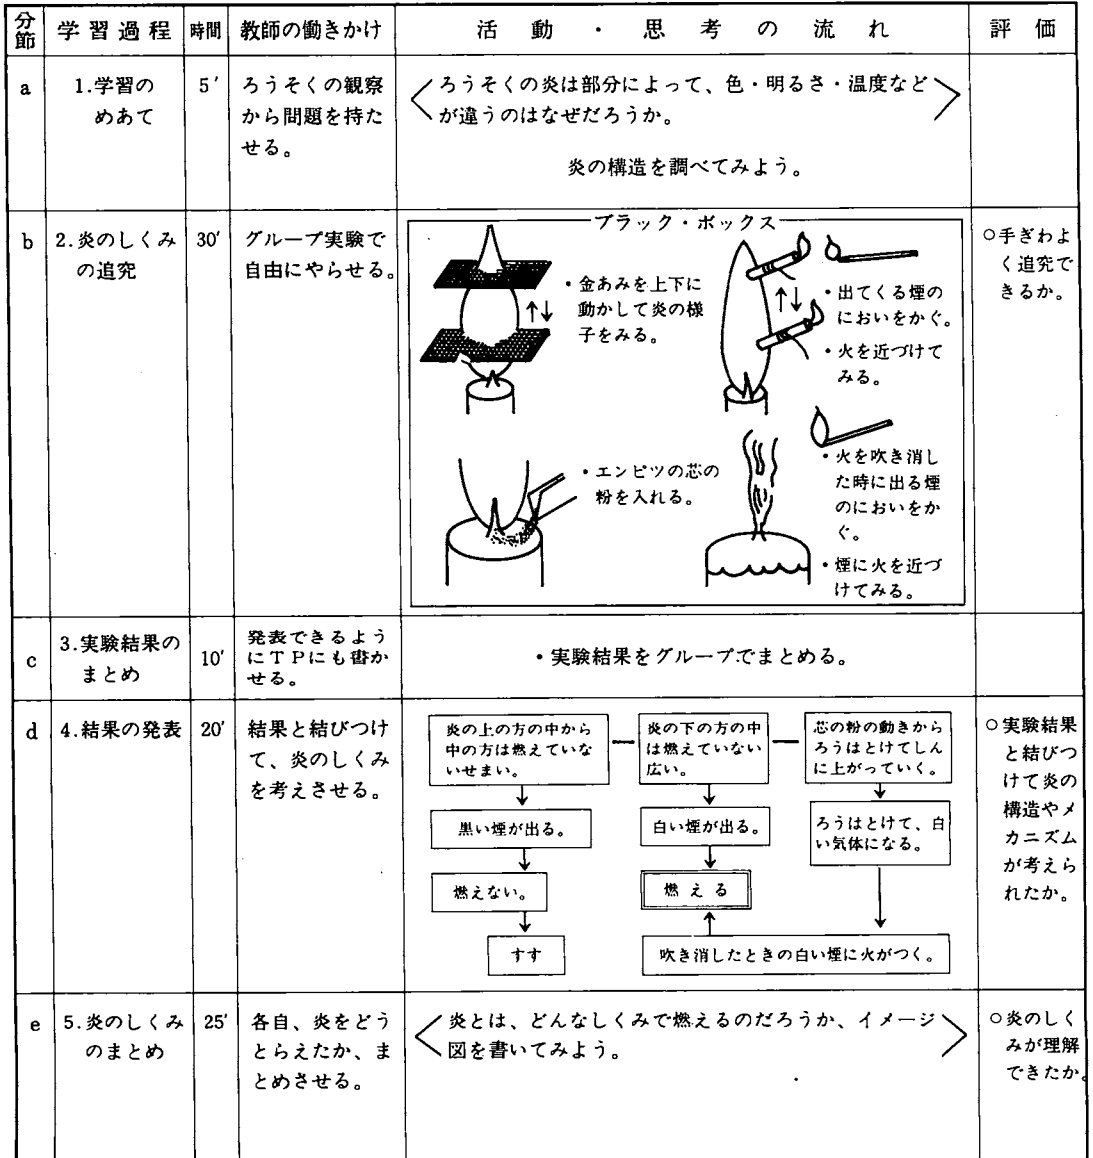 分節 学習過程 時間 教師の働きかけ 活動・思考の流れ 評価
a
1.学習の
めあて
5′
ろうそくの観察
から問題を持た
せる。
ろうそくの炎は部分によって、色・明るさ・温度など
が違うのはなぜだろうか。
炎の構造を調べてみよう。
b
2.炎のしくみ
の追究
30′
グループ実験で
自由にやらせる。
ブラック・ボックス
・金あみを上下に
動かして炎の様
子をみる。
・出てくる煙の
においをかぐ。
・火を近づけて
みる。
・エンピツの芯の
粉を入れる。
・火を吹き消し
た時に出る煙
のにおいをか
ぐ。
・煙に火を近づ
けてみる。
○手ぎわよ
く追究で
きるか。
c
3.実験結果の
まとめ
10′
発表できるよう
にTPにも書か
せる。
・実験結果をグループでまとめる。
d
4.結果の発表
20′
結果と結びつけ
て、炎のしくみ
を考えさせる。
炎の上の方の中から
中の方は燃えていな
いせまい。
黒い煙が出る。
燃えない。
すす
炎の下の方の中
は燃えていない
広い。
白い煙が出る。
燃える
芯の粉の動きから
ろうはとけてしん
に上がっていく。
ろうはとけて、白
い気体になる。
吹き消したときの白い煙に火がつく。
○実験結果
と結びつ
けて炎の
構造やメ
カニズム
が考えら
れたか。
e
5.炎のしくみ
のまとめ
25′
各自、炎をどう
とらえたか、ま
とめさせる。
炎とは、どんなしくみで燃えるのだろうか、イメージ
図を書いてみよう。
○炎のしく
みが理解
できたか。